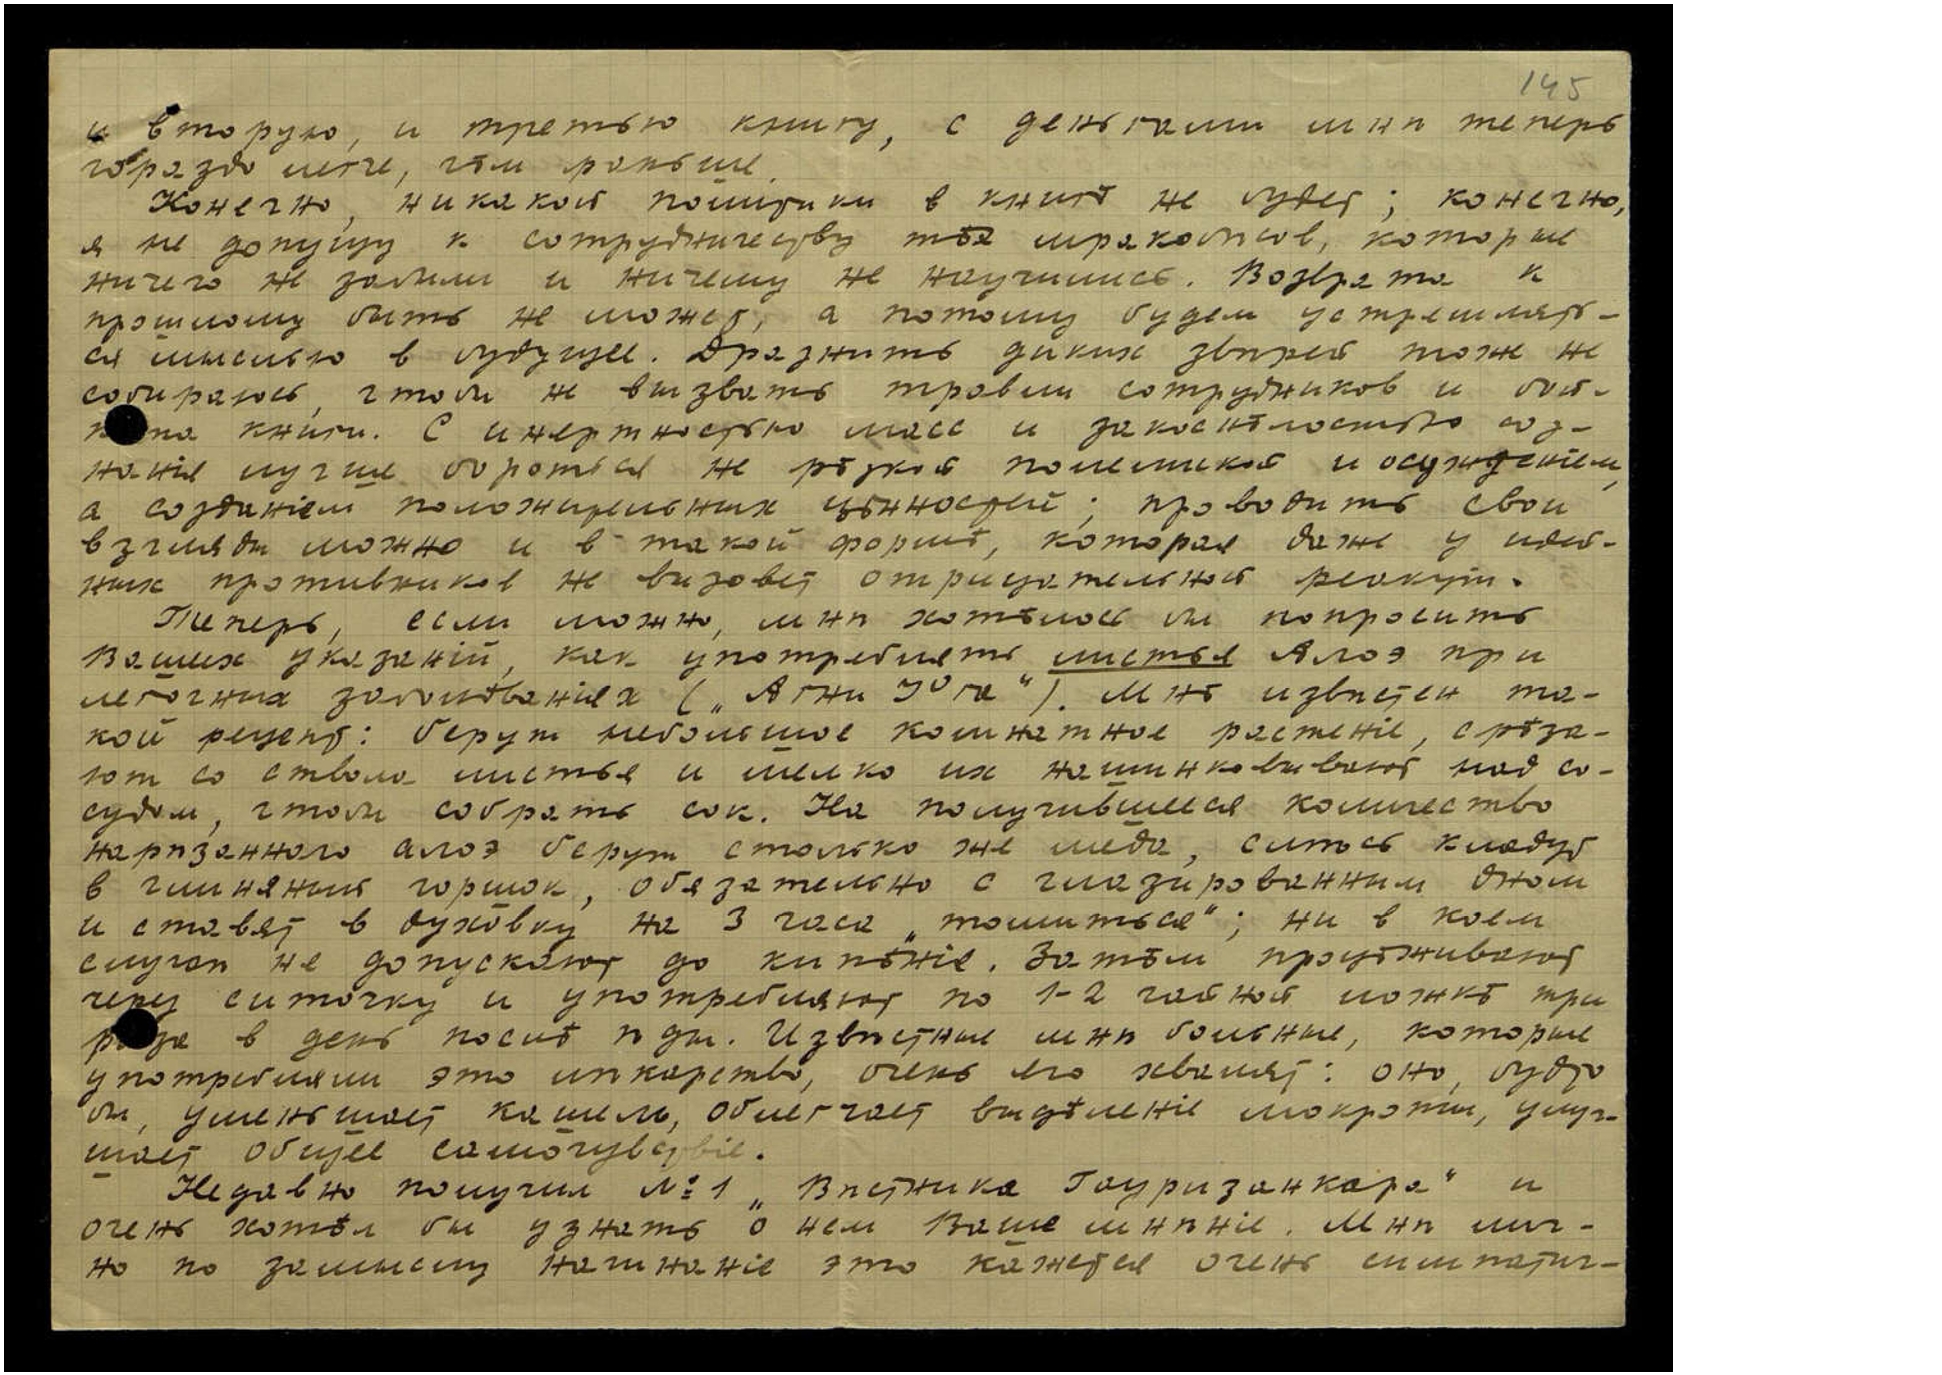 145
и вторую, и третью книгу, с деньгами мнѣ теперь
гораздо легче, чѣм раньше.
Конечно, никакой политики в книгѣ не будет; конечно,
я не допущу к сотрудничеству тѣх мракобѣсов, которые
ничего не забыли и ничему не научились. Возврата к
прошлому быть не может, а потому будем устремлять-
ся мыслью в будущее. Дразнить диких звѣрей тоже не
собираюсь, чтобы не вызвать травли сотрудников и бой-
кота книги. С инертностью масс и закоснѣлостью соз-
нанія лучше бороться не рѣзкой полемикой и осужденіем,
а созданіем положительных цѣнностей; проводить свои
взгляды можно и в такой формѣ, которая даже у идей-
ных противников не вызовет отрицательной реакціи.
Теперь, если можно, мнѣ хотѣлось бы попросить
Ваших указаній, как употреблять листья Алоэ при
легочных заболѣваніях („Агни Йога“). Мнѣ извѣстен та-
кой рецепт: берут небольшое комнатное растеніе, срѣза-
ют со ствола листья и мелко их нашинковывают над со-
судом, чтобы собрать сок. На получившееся количество
нарѣзанного алоэ берут столько же меда, смѣсь кладут
в глиняный горшок, обязательно с глазированным дном
и ставят в духовку на 3 часа „томиться“; ни в коем
случаѣ не допускают до кипѣнія. Затѣм процѣживают
через ситочку и употребляют по 1-2 чайной ложкѣ три
раза в день послѣ ѣды. Извѣстные мнѣ больные, которые
употребляли это лѣкарство, очень его хвалят: оно, будто
бы, уменьшает кашель, облегчает выдѣленіе мокроты, улуч-
шает общее самочувствіе.
Недавно получил №1 „Вѣстника Гауризанкара“ и
очень хотѣл бы узнать о нем Ваше мнѣніе. Мнѣ лич-
но по замыслу начинаніе это кажется очень симпатич-